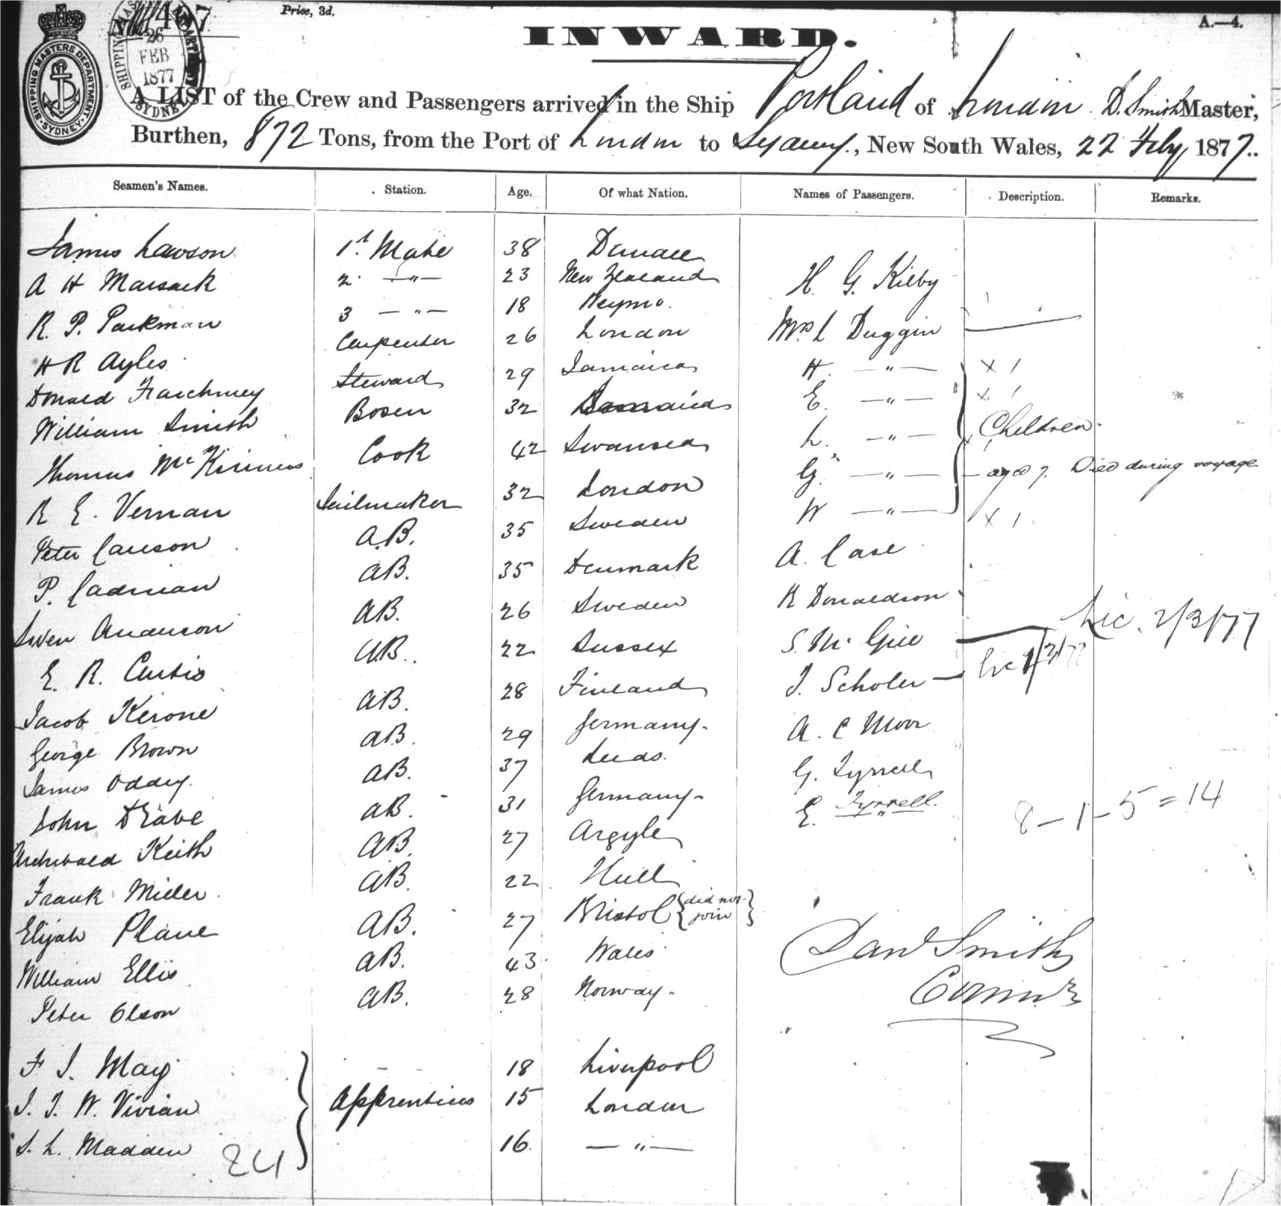 467
Price, 3d.
A.—4.
SHIPPING MASTERS DEPARTMENT. SYDNEY
SHIPPING MASTERS DEPARTMENT 26 FEB 1877 SYDNEY
INWARD.
A LIST of the Crew and Passengers arrived in the Ship Portland of London D. Smith Master,
Burthen, 872 Tons, from the Port of London to Sydney, New South Wales, 22 Feby 1877.
Seamen's Names. Station. Age. Of what Nation. Names of Passengers. Description. Remarks.
James Lawson 1st Mate 38 H. G. Kilby
A H Marsack 2 —"— 23 New Zealand Mrs L Duggin
R. P. Parkman 3 —"— 18 H. —"— x 1
H R Ayles Carpenter 26 London E. —"— x 1
Donald Steward 29 Jamaica L. —"— Children
William Smith Bosen 32 G. —"— aged 7. Died during voyage
Thomas Cook 42 Swansea W —"— x 1
R E. Vernan Sailmaker 32 London A. Case
Peter A.B. 35 Sweden R Donaldson
P. AB. 35 Denmark S. McGill Lic. 2/3/77
Swen Anderson AB. 26 Sweden
E. R. Curtis AB. 22 Sussex J. Scholer
Jacob Kerone AB. 28 Finland A. C Moor
George Brown AB. 29 Germany G. Tyrrell
James Oddy AB. 37 Leeds E. Tyrrell
John AB. 31 Germany 8 – 1 – 5 = 14
Archibald Keith AB. 27 Argyle
Frank Miller AB. 22 Hull
Elijah Plane AB. 27 Bristol {did not join}
William Ellis AB. 43 Wales
Peter Olson AB. 28 Norway
Danl Smith
F J. May 18 Liverpool
J. T. W. Vivian Apprentices 15 London
S. L. Madden 16 —"—
24